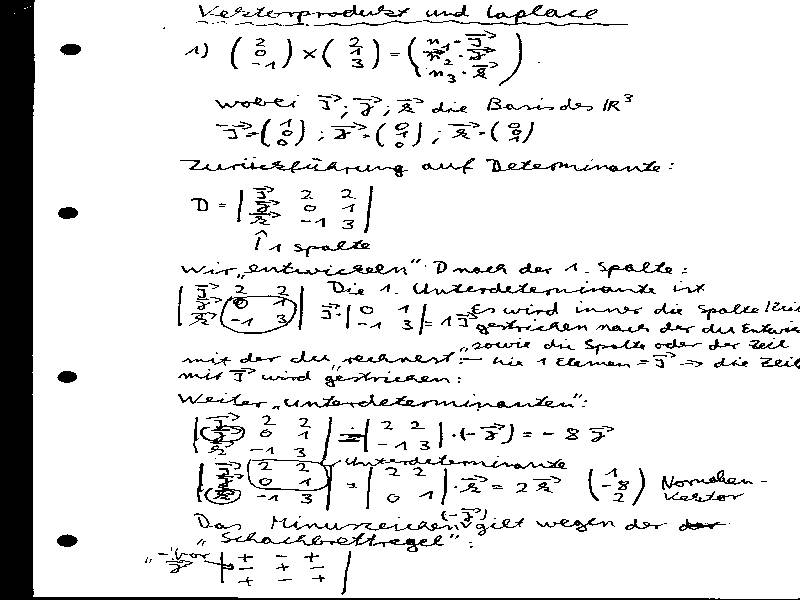 Vektorprodukt und Laplace
1) (2 0 -1) × (2 1 3) = (n₁·i⃗ n₂·j⃗ n₃·k⃗)
wobei i⃗; j⃗; k⃗ die Basis des ℝ³
i⃗=(1 0 0); j⃗=(0 1 0); k⃗=(0 0 1)
Zurückführung auf Determinante:
D = |i⃗ 2 2
j⃗ 0 1
k⃗ -1 3|
↑ 1 Spalte
Wir „entwickeln" D nach der 1. Spalte:
|i⃗ 2 2 Die 1. Unterdeterminante ist
j⃗ 0 1 i⃗·|0 1 -1 3| = 1 i⃗ Es wird immer die Spalte/Zeil
k⃗ -1 3| gestrichen nach der du Entwic
sowie die Spalte oder der Zeil
mit der du „rechnest": 1 Elemen = i⃗ → die Zeil
mit i⃗ wird gestrichen:
Weiter „Unterdeterminanten":
|i⃗ 2 2 j⃗ 0 1 k⃗ -1 3| = |2 2 -1 3|·(-j⃗) = -8 j⃗
Unterdeterminante
|i⃗ 2 2 j⃗ 0 1 k⃗ -1 3| = |2 2 0 1|·k⃗ = 2 k⃗ (1 -8 2) Normalen-
vektor
Das Minuszeichen (-j⃗) gilt wegen der der
„Schachbrettregel":
„-" vor j⃗ → |+ - +
- + -
+ - +|